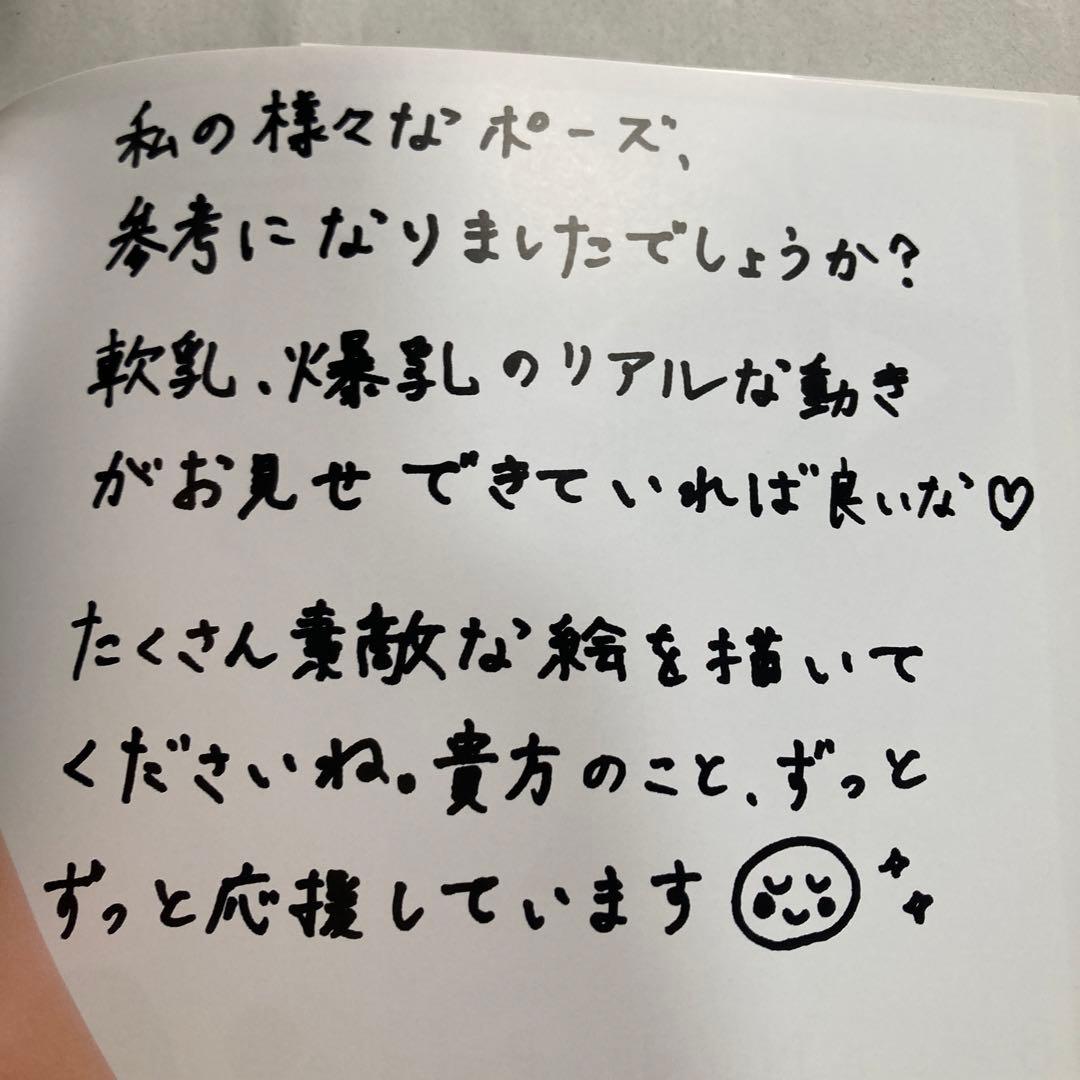 私の様々なポーズ、
参考になりましたでしょうか?
軟乳、爆乳のリアルな動き
がお見せできていれば良いな♡
たくさん素敵な絵を描いて
くださいね。貴方のこと、ずっと
ずっと応援しています